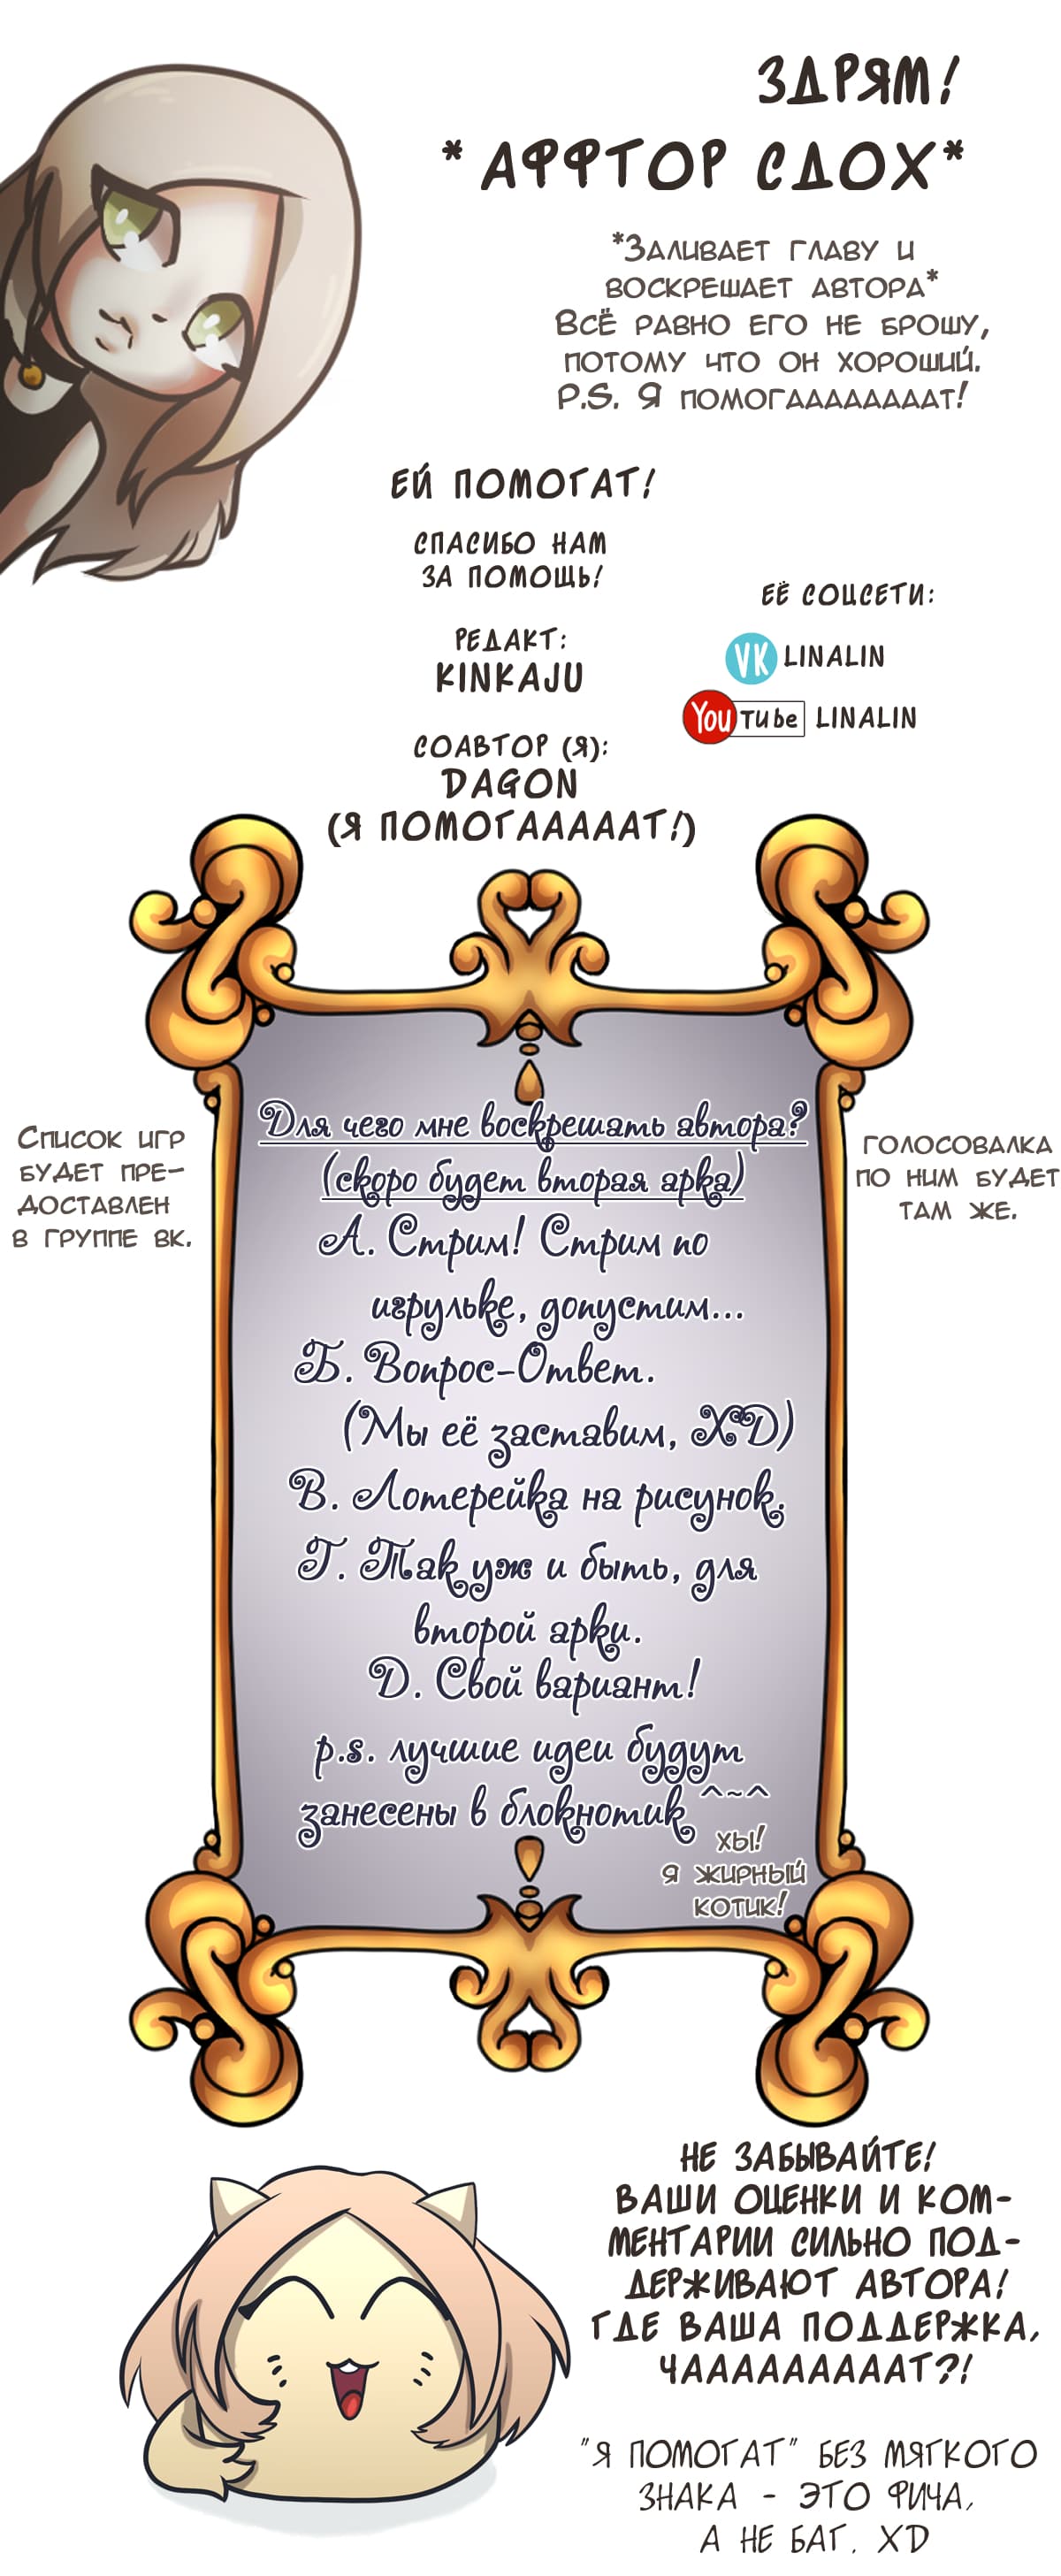 ЗДРЯМ!
*АФФТОР СДОХ*
*Заливает главу и
воскрешает автора*
Всё равно его не брошу,
потому что он хороший.
P.S. Я помогаааааааат!
ЕЙ ПОМОГАТ!
СПАСИБО НАМ
ЗА ПОМОЩЬ!
ЕЁ СОЦСЕТИ:
РЕДАКТ:
KINKAJU
VK LINALIN
YouTube LINALIN
СОАВТОР (Я):
DAGON
(Я ПОМОГАААААТ!)
Для чего мне воскрешать автора?
(скоро будет вторая арка)
Список игр
будет пре-
доставлен
в группе вк.
голосовалка
по ним будет
там же.
А. Стрим! Стрим по
игрульке, допустим...
Б. Вопрос-Ответ.
(Мы её заставим, XD)
В. Лотерейка на рисунок.
Г. Так уж и быть, для
второй арки.
Д. Свой вариант!
p.s. лучшие идеи будут
занесены в блокнотик ^~^
хы!
я жирный
котик!
НЕ ЗАБЫВАЙТЕ!
ВАШИ ОЦЕНКИ И КОМ-
МЕНТАРИИ СИЛЬНО ПОД-
ДЕРЖИВАЮТ АВТОРА!
ГДЕ ВАША ПОДДЕРЖКА,
ЧАААААААААТ?!
"Я ПОМОГАТ" БЕЗ МЯГКОГО
ЗНАКА - ЭТО ФИЧА,
А НЕ БАГ. XD